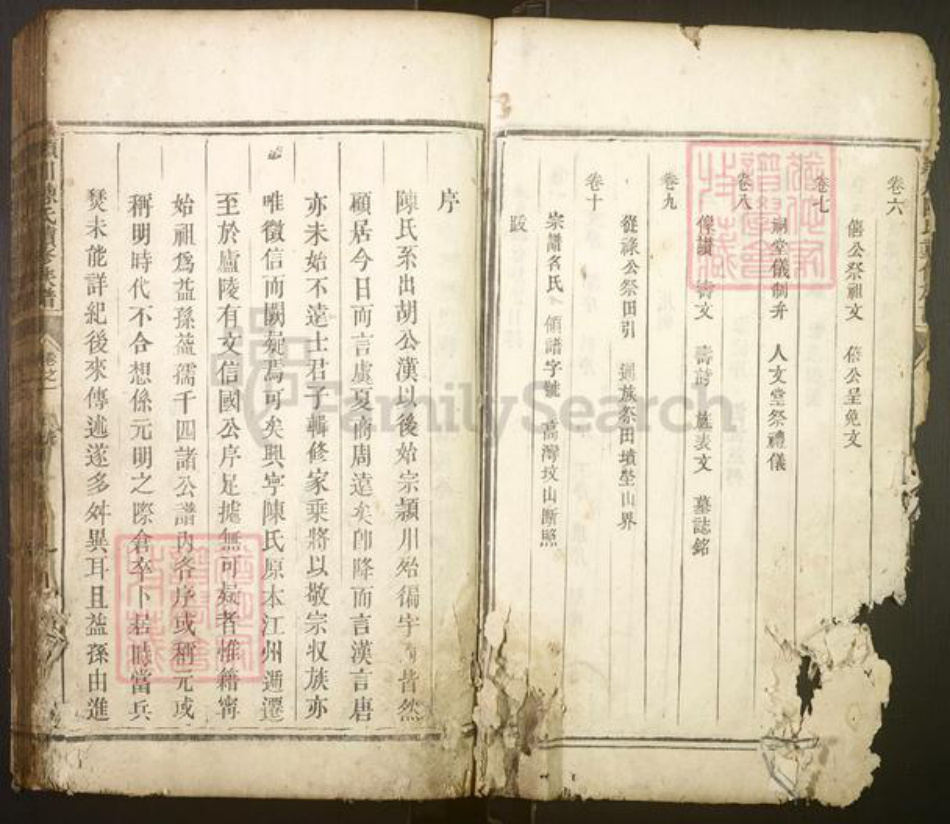 卷六
僖公祭祖文 僖公呈免文
卷七
祠堂儀制弁 人文堂祭禮儀
卷八
像讚 壽文 壽詩 旌表文 墓誌銘
卷九
從祿公祭田引 通族祭田墳塋山界
卷十
宗譜名氏 領譜字號 高灣坟山断照
跋
序
陳氏系出胡公漢以後始宗潁川殆徧宇 皆然
顧居今日而言虞夏商周遠矣卽降而言漢言唐
亦未始不遠士君子輯修家乘將以敬宗収族亦
唯徵信而闕疑焉可矣興宁陳氏原本江州遞遷
至於廬陵有文信國公序足據無可疑者惟籍宁
始祖爲益孫益孺千四諸公譜內各序或稱元或
稱明時代不合想係元明之際倉卒卜居時當兵
燹未能詳紀後來傳述遂多舛異耳且益孫由進
陳氏續修族譜
卷之
FamilySearch